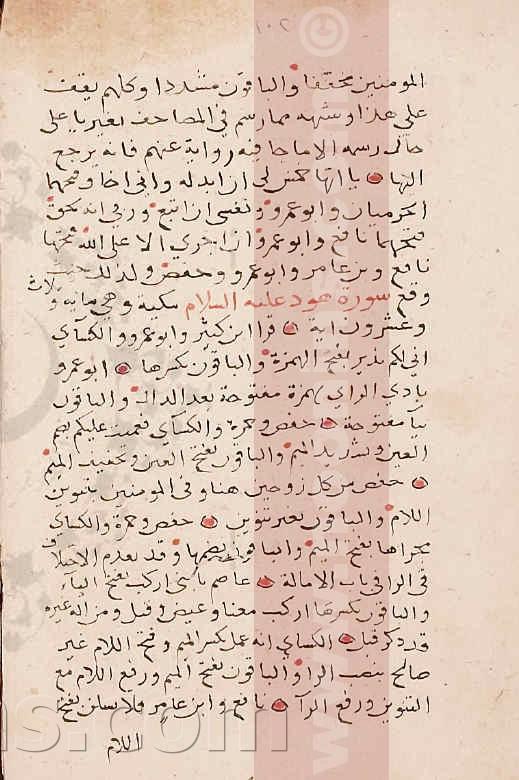 ١٠٢
المومنين مخففا والباقون مشددا وكلهم يقف
على هذا وشبهه مما رسم في المصاحف بغير يا على
حال رسمه الا ما جا فيه رواية عنهم فانه يرجع
اليها ياءاتها خمس لي ان ابدله واني اخاف فتحهما
الحرميان وابو عمرو ونفسي ان اتبع وربي انه لحق
فتحهما نافع وابو عمرو ان اجري الا على الله فتحها
نافع وبن عامر وابو عمرو وحفص وكذلك حيث
وقع سورة هود عليه السلام مكية وهي مايه وثلاث
وعشرون اية قرا ابن كثير وابو عمرو والكسآي
اني لكم نذير بفتح الهمزة والباقون بكسرها ابو عمرو
بادي الراي بهمزة مفتوحة بعد الدال والباقون
بيآ مفتوحة حفص وحمزة والكسآي فعميت عليكم بضم
العين وتشديد الميم والباقون بفتح العين وتخفيف الميم
حفص من كل زوجين هنا وفي المومنين بتنوين
اللام والباقون بغير تنوين حفص وحمزة والكسآي
مجراها بفتح الميم والباقون بضمها وقد تقدم الاختلاف
في الرا في باب الامالة عاصم يا بني اركب بفتح اليآء
والباقون بكسرها اركب معنا وغيض وقيل ومن اله غيره
قد ذكر قبل الكسآي انه عمل بكسر الميم وفتح اللام غير
صالح بنصب الرا والباقون بفتح الميم ورفع اللام مع
التنوين ورفع الرآ نافع وابن عامر فلا تسلن بفتح
اللام